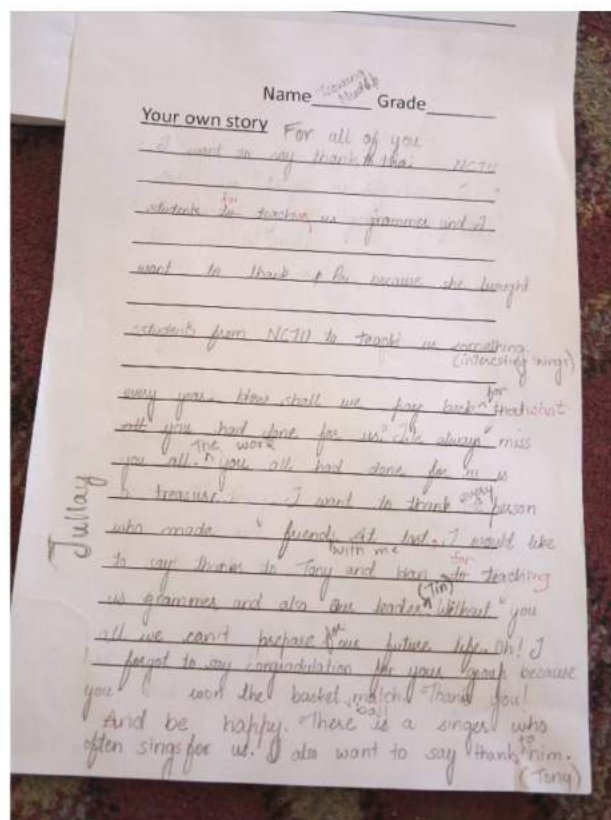 Name Tsewang Grade
Your own story For all of you
I want to say thank to NCTU
students for teaching us grammes and I
want to thank because she brought
students from NCTU to teach us something
(interesting things)
every year. How shall we pay back for that what
all you had done for us. We always miss
you all. The work you all had done for us is
a treasure. I want to thank every person
who made friend with me At last, I would like
to say thanks to Tony and Han for teaching
us grammes and also our leader (Tin) Without you
all we can't prepare for our future life. Oh! I
forgot to say congradulation for your group because
you won the basket ball match. Thank you!
And be happy. There is a singer who
often sings for us. I also want to say thank to him.
(Tony)
Jullay